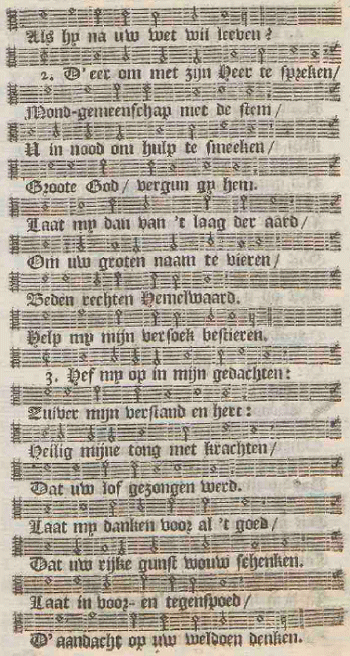 Als hy na uw wet wil leeven?
2. D'eer om met zijn Heer te spreken/
Mond-gemeenschap met de stem/
U in nood om hulp te smeeken/
Groote God/ vergun gy hem.
Laat my dan van 't laag der aard/
Om uw groten naam te vieren/
Beden rechten Hemelwaard.
Help my mijn versoek bestieren.
3. Hef my op in mijn gedachten:
Zuiver mijn verstand en hert:
Heilig mijne tong met krachten/
Dat uw lof gezongen werd.
Laat my danken voor al 't goed/
Dat uw rijke gunst wouw schenken.
Laat in voor- en tegenspoed/
D'aandacht op uw weldoen denken.